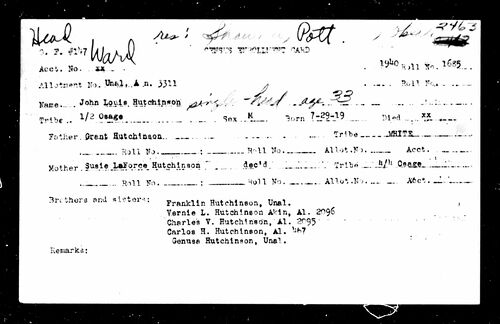 Head res: Pott. 2463
C. F. #147 Ward CENSUS ENROLLMENT CARD
Acct. No. xx 1940 Roll No. 1685
Allotment No. Unal, A n. 3311 Roll No.
Name John Louis Hutchinson single-hed age 33
Tribe 1/2 Osage Sex M Born 7-29-19 Died xx
Father Grant Hutchinson Tribe WHITE
Roll No. : Roll No. Allot.No. Acct.
Mother Susie LaForce Hutchinson dec'd Tribe 4/4 Osage
Roll No. : Roll No. Allot.No. Acct.
Brothers and sisters: Franklin Hutchinson, Unal.
Vernie L. Hutchinson Akin, Al. 2096
Charles V. Hutchinson, Al. 2095
Carlos H. Hutchinson, Al. 467
Genusa Hutchinson, Unal.
Remarks: